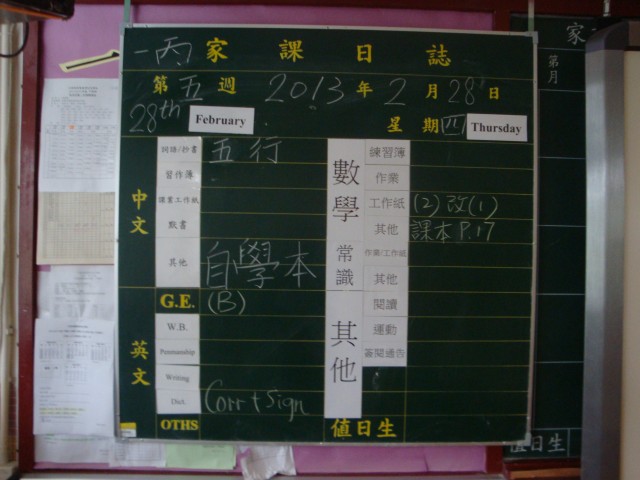 一丙 家課日誌
第五週 2013年2月28日
28th February 星期四 Thursday
中文
詞語/抄書 五行
習作簿
讀書工作紙
默書
其他 自學本
英文
G.E. (B)
W.B.
Penmanship
Writing
Dict. Corr + Sign
OTHS
數學
練習簿
作業
工作紙 (2) 改(1)
其他 課本 P.17
常識
作業/工作紙
其他
其他
閱讀
運動
簽閱通告
值日生
家
第
月
值日生